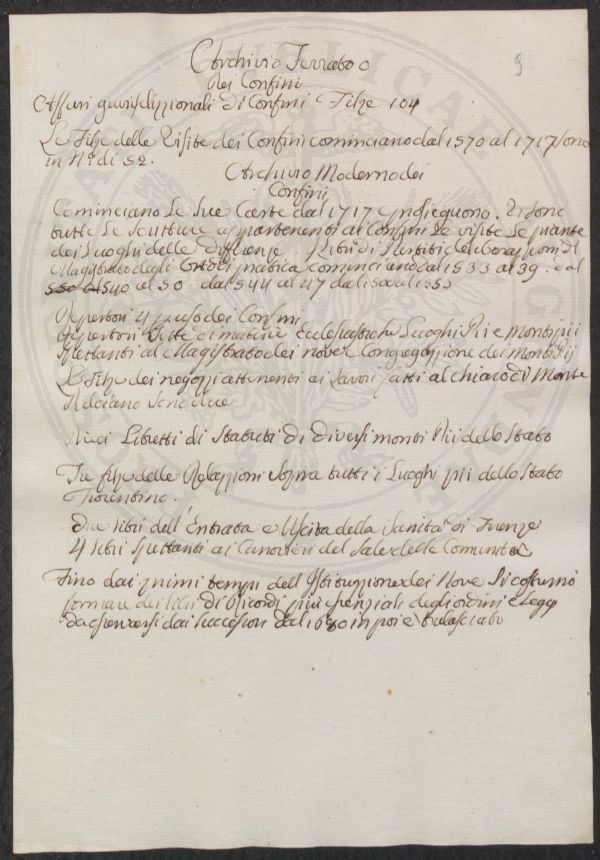 9
Archivio Ferrato o
dei Confini
Affari giurisdizzionali di Confini Filze 104
Le Filze delle Visite dei Confini cominciano dal 1570 al 1717 sono
in N.º di 52.
Archivio Moderno dei
Confini
Cominciano Le Sue Carte dal 1717 e Vi sono
tutte Le Scritture appartenenti ai Confini Le visite Le piante
dei Luoghi delle differenze Libri di Partiti deliberazzioni di
Magistrato degli Otto di pratica cominciano dal 1533 al 39. dal
1540 al 50 dal 544 al 47 dal 1550 al 1553
Repertori 4 uso dei Confini
Repertori Sette di materie Ecclesiastiche Luoghi Pii e monti pii
Spettanti al Magistrato dei nove e Congregazzione dei monti Pij
Le Filze dei negozzi attenenti ai Lavori fatti al chiaro di Monte
Pulciano Sono due
Libretti di Statuti di diversi monti Pii dello Stato
Tre filze delle Relazzioni Sopra tutti i Luoghi pii dello Stato
Fiorentino.
due libri dell'Entrata e Uscita della Sanità di Firenze
4 Libri Spettanti ai Canovieri del Sale delle Comunità
Fino dai primi tempi dell'Istituzzione dei Nove Si costumò
formare dei libri di Ricordi più essenziali degli ordini e Leggi
da dai Successori dal 1680 in poi è tralasciato